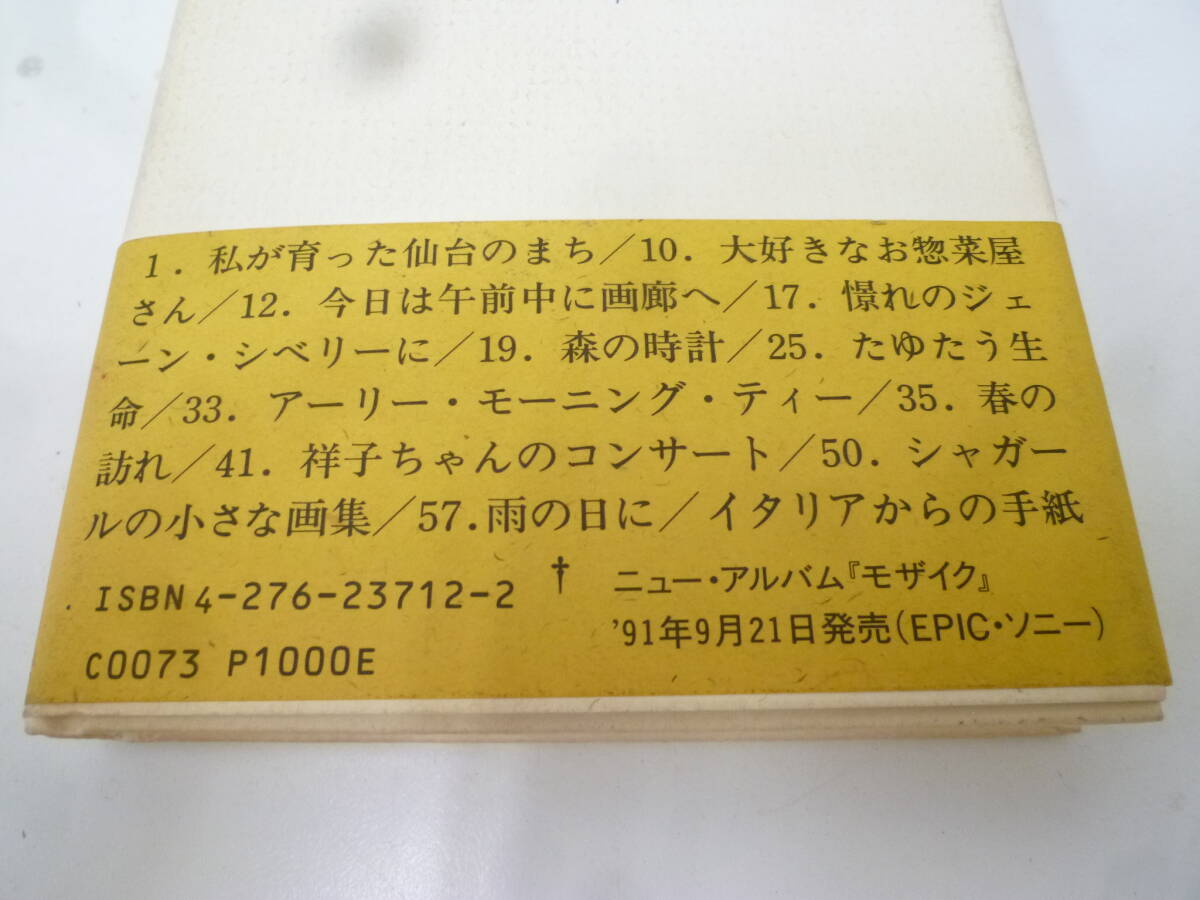 1．私が育った仙台のまち／10．大好きなお惣菜屋
さん／12．今日は午前中に画廊へ／17．憬れのジェ
ーン・シベリーに／19．森の時計／25．たゆたう生
命／33．アーリー・モーニング・ティー／35．春の
訪れ／41．祥子ちゃんのコンサート／50．シャガー
ルの小さな画集／57．雨の日に／イタリアからの手紙
ISBN4-276-23712-2
C0073 P1000E
† ニュー・アルバム『モザイク』
'91年9月21日発売（EPIC・ソニー）